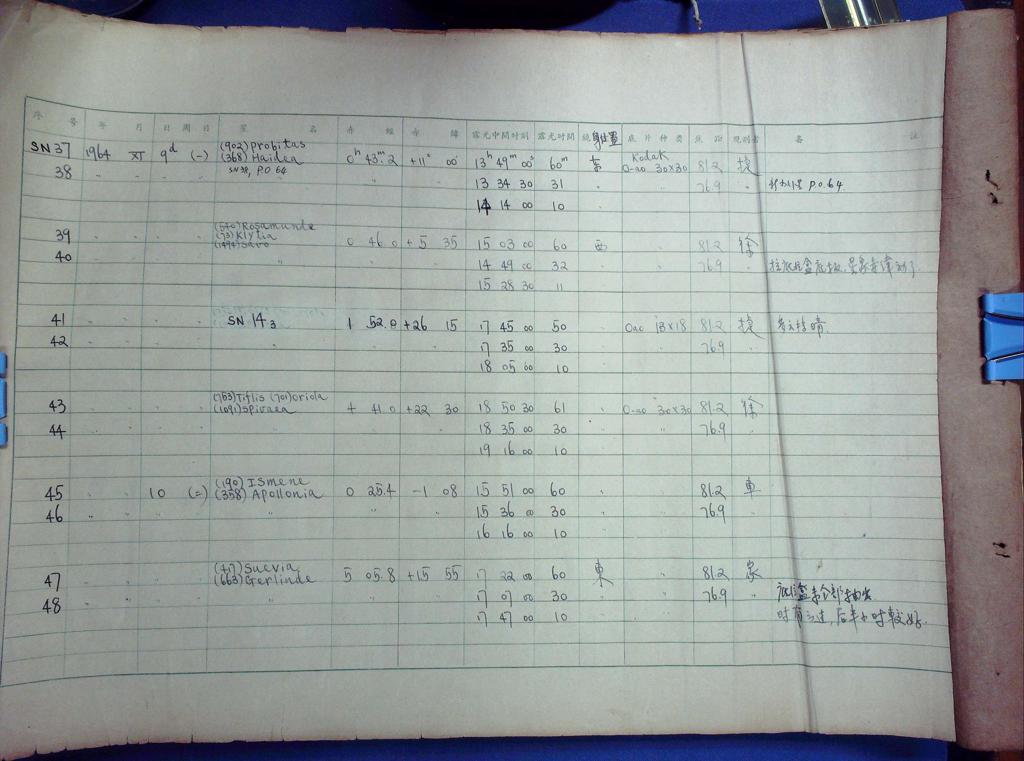 序 号 年 月 日 周 日 星 名 赤 经 赤 纬 露光中间时刻 露光时间 镜身位置 底 片 种 类 焦 距 观测者 备 注
SN37 1964 XI 9d (一) (902) Probitas
(368) Haidea 0h 43m.2 +11° 00' 13h 49m 00s 60m 东 Kodak
O-ao 30x30 81.2 捷
38 〃 〃 〃 SN38, P.O 64 〃 〃 13 34 30 31 〃 〃 76.9 〃 P.O.64
14 14 00 10
39 〃 〃 〃 (540) Rosamunde
(73) Klytia
(1494) Savo 0 46.0 +5 35 15 03 00 60 西 〃 81.2 徐
40 〃 〃 〃 〃 〃 〃 14 49 00 32 〃 〃 76.9 〃
15 28 30 11
41 〃 〃 〃 SN 143 1 52.0 +26 15 17 45 00 50 〃 Oao 13x18 81.2 捷
42 〃 〃 〃 〃 〃 〃 17 35 00 30 〃 76.9 〃
18 05 00 10
43 〃 〃 〃 (753) Tiflis (701) Oriola
(1091) Spiraea 4 41.0 +22 30 18 50 30 61 〃 O-ao 30x30 81.2 徐
44 〃 〃 〃 〃 〃 〃 18 35 00 30 〃 〃 76.9 〃
19 16 00 10
45 〃 〃 10 (二) (190) Ismene
(358) Apollonia 0 25.4 -1 08 15 51 00 60 〃 81.2 車
46 〃 〃 〃 〃 〃 〃 15 36 00 30 〃 76.9 〃
16 16 00 10
47 〃 〃 〃 (417) Suevia
(663) Gerlinde 5 05.8 +15 55 17 22 00 60 東 〃 81.2 家
48 〃 〃 〃 〃 〃 〃 17 07 00 30 〃 〃 76.9 〃 底片盒未全部抽出
17 47 00 10 时有云过, 后半小时較好.